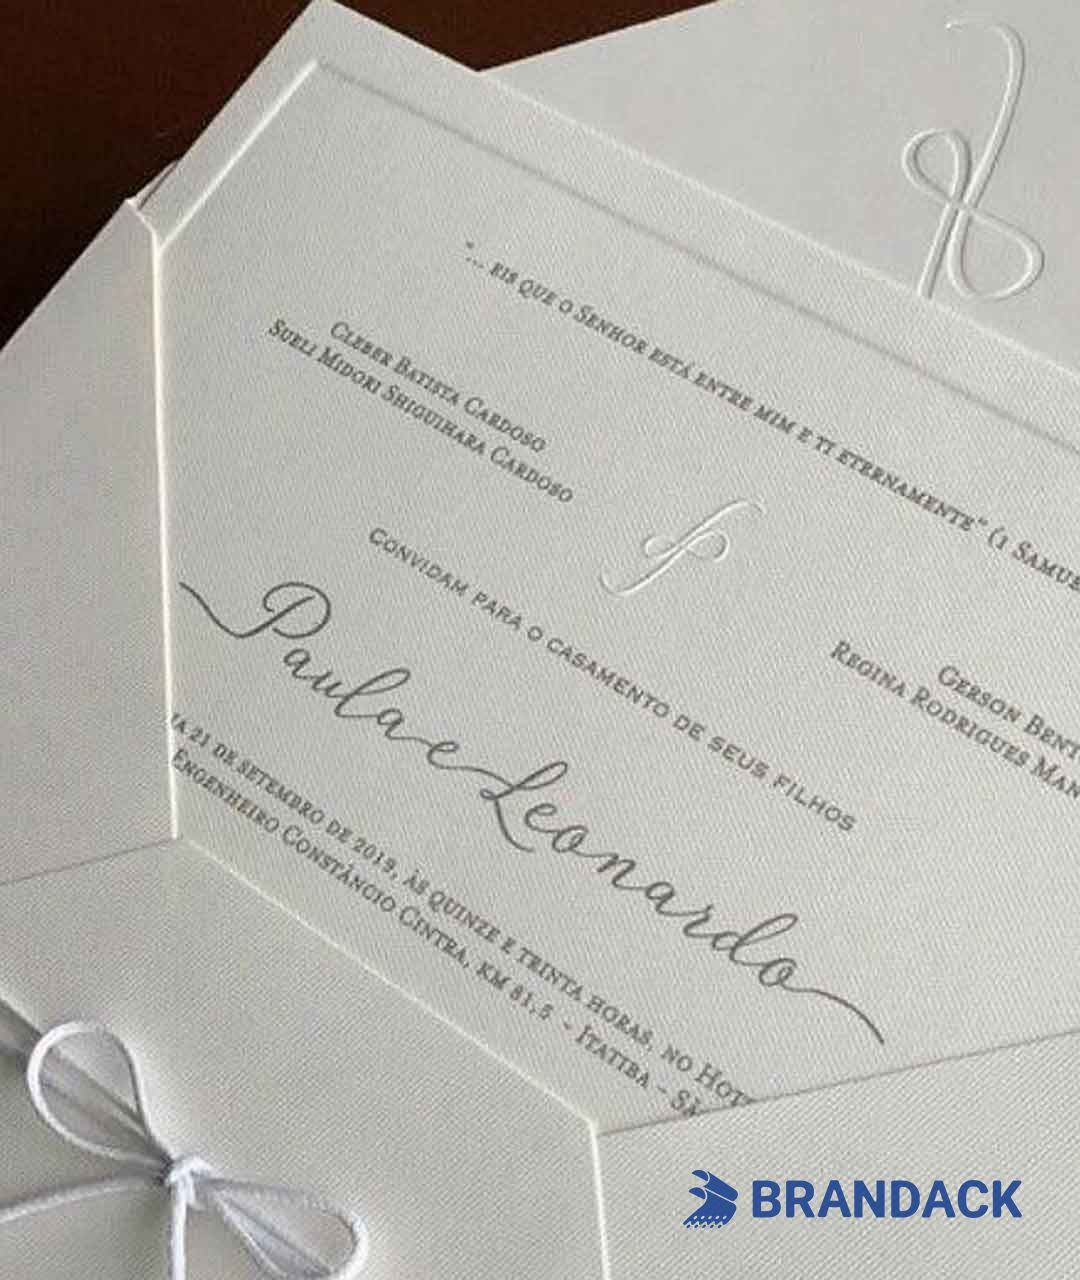 "... eis que o Senhor está entre mim e ti eternamente" (1
Cleber Batista Cardoso
Sueli Midori Shiguihara Cardoso
Gerson
Regina Rodrigues
Convidam para o casamento de seus filhos
Paula e Leonardo
21 de setembro de 2019, às quinze e trinta horas, no
Engenheiro Constâncio Cintra, km 81,5 - Itatiba -
BRANDACK